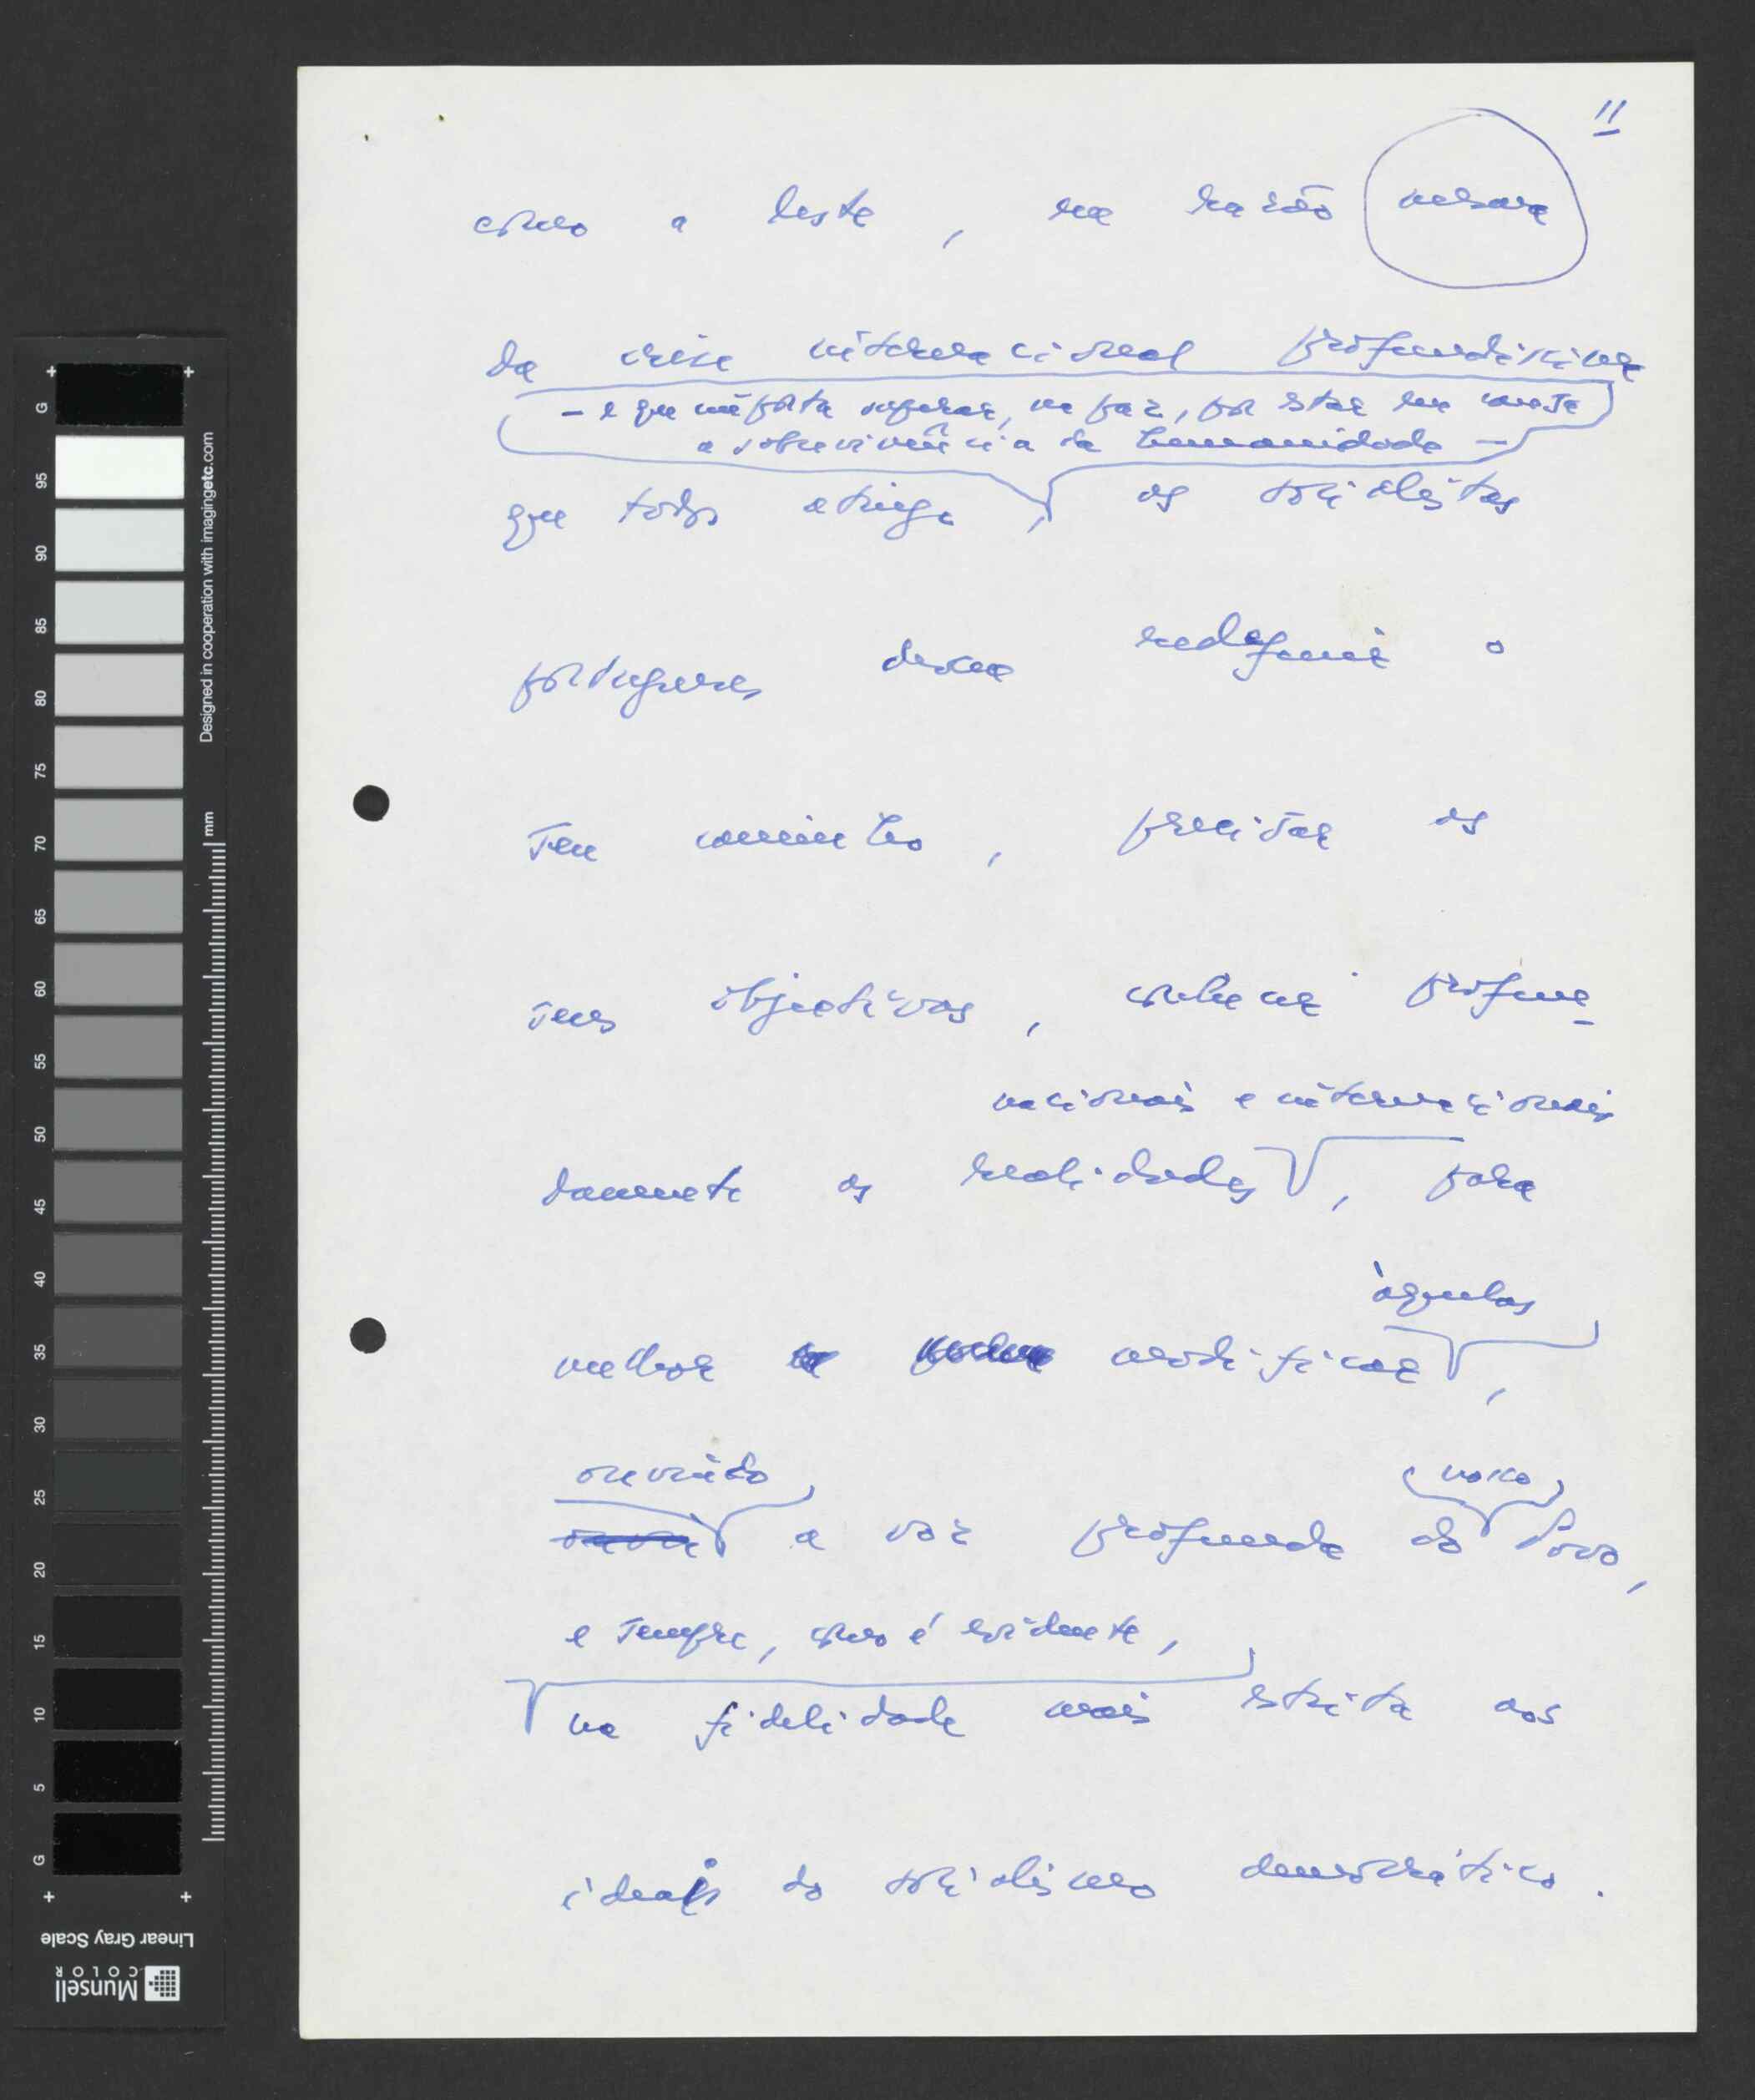 11
como a leste, em razão mesma
da crise internacional profundíssima
– e que importa superar, na paz, por estar em causa
a sobrevivência da humanidade –
que todos atinge, os socialistas
portugueses devem redefinir o
seu caminho, precisar os
seus objectivos, conhecer profun-
nacionais e internacionais
damente as realidades, para
àquelas
melhor modificar,
ouvindo
nosso
a voz profunda do Povo,
e sempre, como é evidente,
na fidelidade mais estrita aos
ideais do socialismo democrático.
G
95
90
85
80
75
70
65
60
55
50
45
40
35
30
25
20
15
10
5
G
Designed in cooperation with imagingetc.com
mm
Linear Gray Scale
Munsell
COLOR